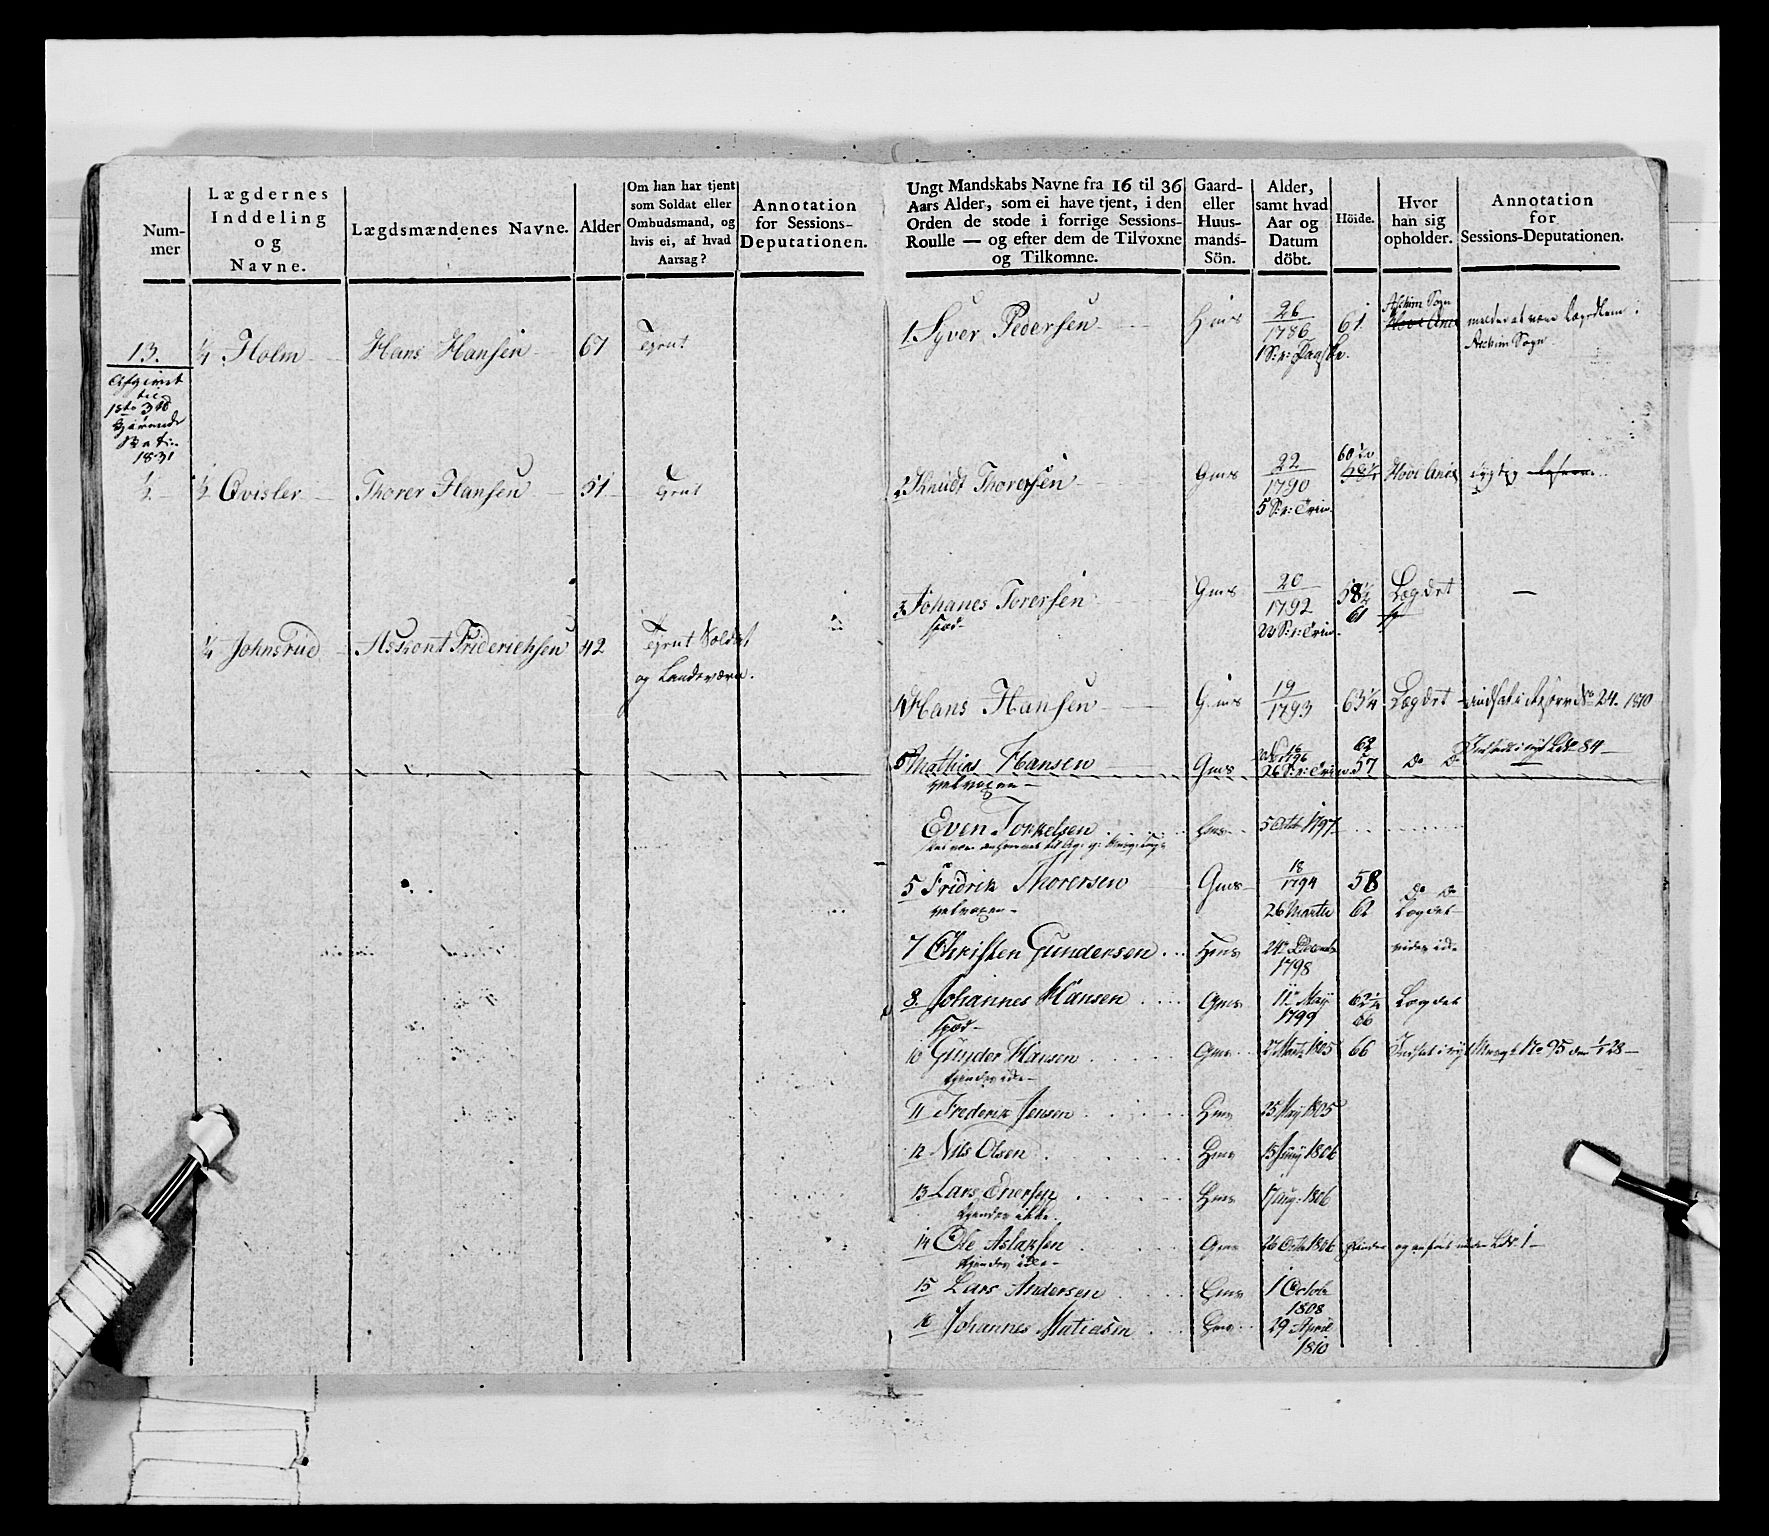 Num-
mer
Lægdernes
Inddeling
og
Navne.
Lægdsmændenes Navne.
Alder
Om han har tjent
som Soldat eller
Ombudsmand, og
hvis ei, af hvad
Aarsag?
Annotation
for Sessions-
Deputationen.
13.
Afgivet
til
1831
1/2
1/4 Holm
Hans Hansen
67
Tjent
1/2 Qvisler
Thorer Hansen
51
Tjent
1/4 Johnsrud
Friderichsen
42
Tjent Soldat
og Landeværn.
Ungt Mandskabs Navne fra 16 til 36
Aars Alder, som ei have tjent, i den
Orden de stode i forrige Sessions-
Roulle — og efter dem de Tilvoxne
og Tilkomne.
Gaard-
eller
Huus-
mands-
Sön.
Alder,
samt hvad
Aar og
Datum
döbt.
Höide.
Hvor
han sig
opholder.
Annotation
for
Sessions-Deputationen.
1. Syver Pedersen
Hms
26
1786
61
Aschim Sogn
Aschim Sogn
2 Knudt Thorersen
Gms
22
1790
5 S: e: Trin.
60 1/2
58 1/2
dygtig
3 Johanes Torersen
spæd
Gms
20
1792
58 1/2
61
Lægdet
—
4 Hans Hansen
Gms
19
1793
63 1/4
Lægdet
No 24. 1810
5 Mathias Hansen
velvoxen
Gms
16
1796
26 S: e: Trin
62
57
Do Do
84
Even Torkelsen
Hms
5 Octbr 1797
5 Fridrik Thorersen
velvoxen
Gms
18
1794
26 Martii
58
62
Do Do
Lægdet
7 Christen Gundersen
Hms
24 Decembr
1798
vides ikke
8. Johannes Hansen
spæd
Gms
11 May
1799
62 1/4
66
Lægdet
10 Gunder Hansen
kjendes ikke
Gms
27 Marts 1805
66
No 95 den 1/1 28
11 Frederik Jensen
Hms
25 May 1805
12 Nils Olsen
Hms
15 Juny 1806
13 Lars Enersen
kjendes ikke
Hms
17 Aug: 1806
14 Ole Aslaksen
kjendes ikke
Gms
26 Octbr 1806
15 Lars Andersen
Hms
1 Octobr
1808
16 Johannes Matiesen
Hms
29 April
1810